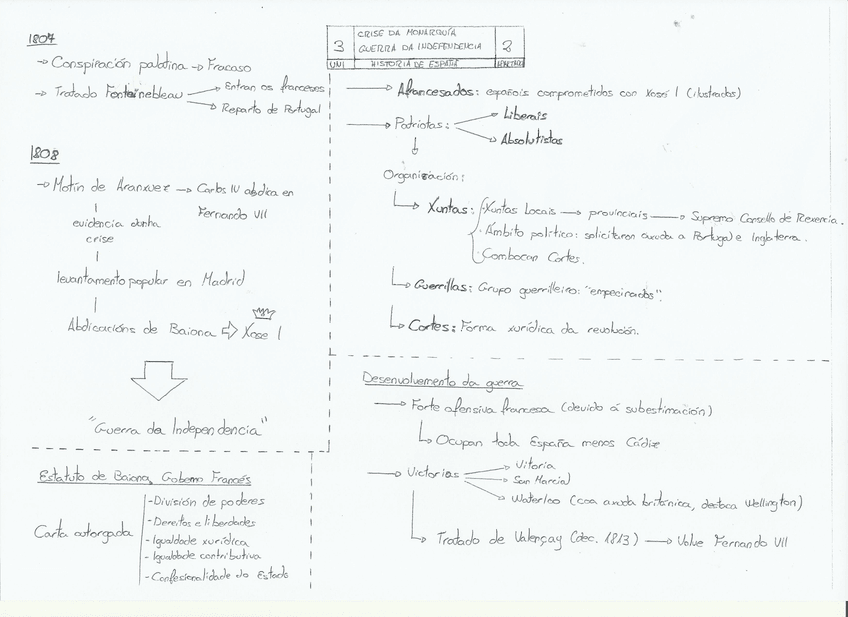 1807
→ Conspiración palatina → Fracaso
→ Tratado Fontainebleau → Entran os franceses
→ Reparto de Portugal
1808
→ Motín de Aranxuez → Carlos IV abdica en
Fernando VII
evidencia dunha
crise
levantamento popular en Madrid
Abdicacións de Baiona ⇒ Xose I
"Guerra da Independencia"
Estatuto de Baiona, Goberno Francés
Carta outorgada
- División de poderes
- Dereitos e liberdades
- Igualdade xurídica
- Igualdade contributiva
- Confesionalidade do Estado
3
CRISE DA MONARQUÍA
GUERRA DA INDEPENDENCIA
2
UNI
HISTORIA DE ESPAÑA
→ Afrancesados: españois comprometidos con Xosé I (ilustrados)
→ Patriotas: → Liberais
→ Absolutistas
Organización:
→ Xuntas: · Xuntas Locais → provinciais → Supremo Consello de Rexencia.
· Ámbito político: solicitaron axuda a Portugal e Inglaterra.
· Combocan Cortes.
→ Guerrillas: Grupo guerrilleiro: "empecinados".
→ Cortes: Forma xurídica da revolución.
Desenvolvemento da guerra
→ Forte ofensiva francesa (devido á subestimación)
→ Ocupan toda España menos Cádiz
→ Victorias → Vitoria
→ San Marcial
→ Waterloo (coa axuda británica, destaca Wellington)
→ Tratado de Valençay (dec. 1813) → Volve Fernando VII